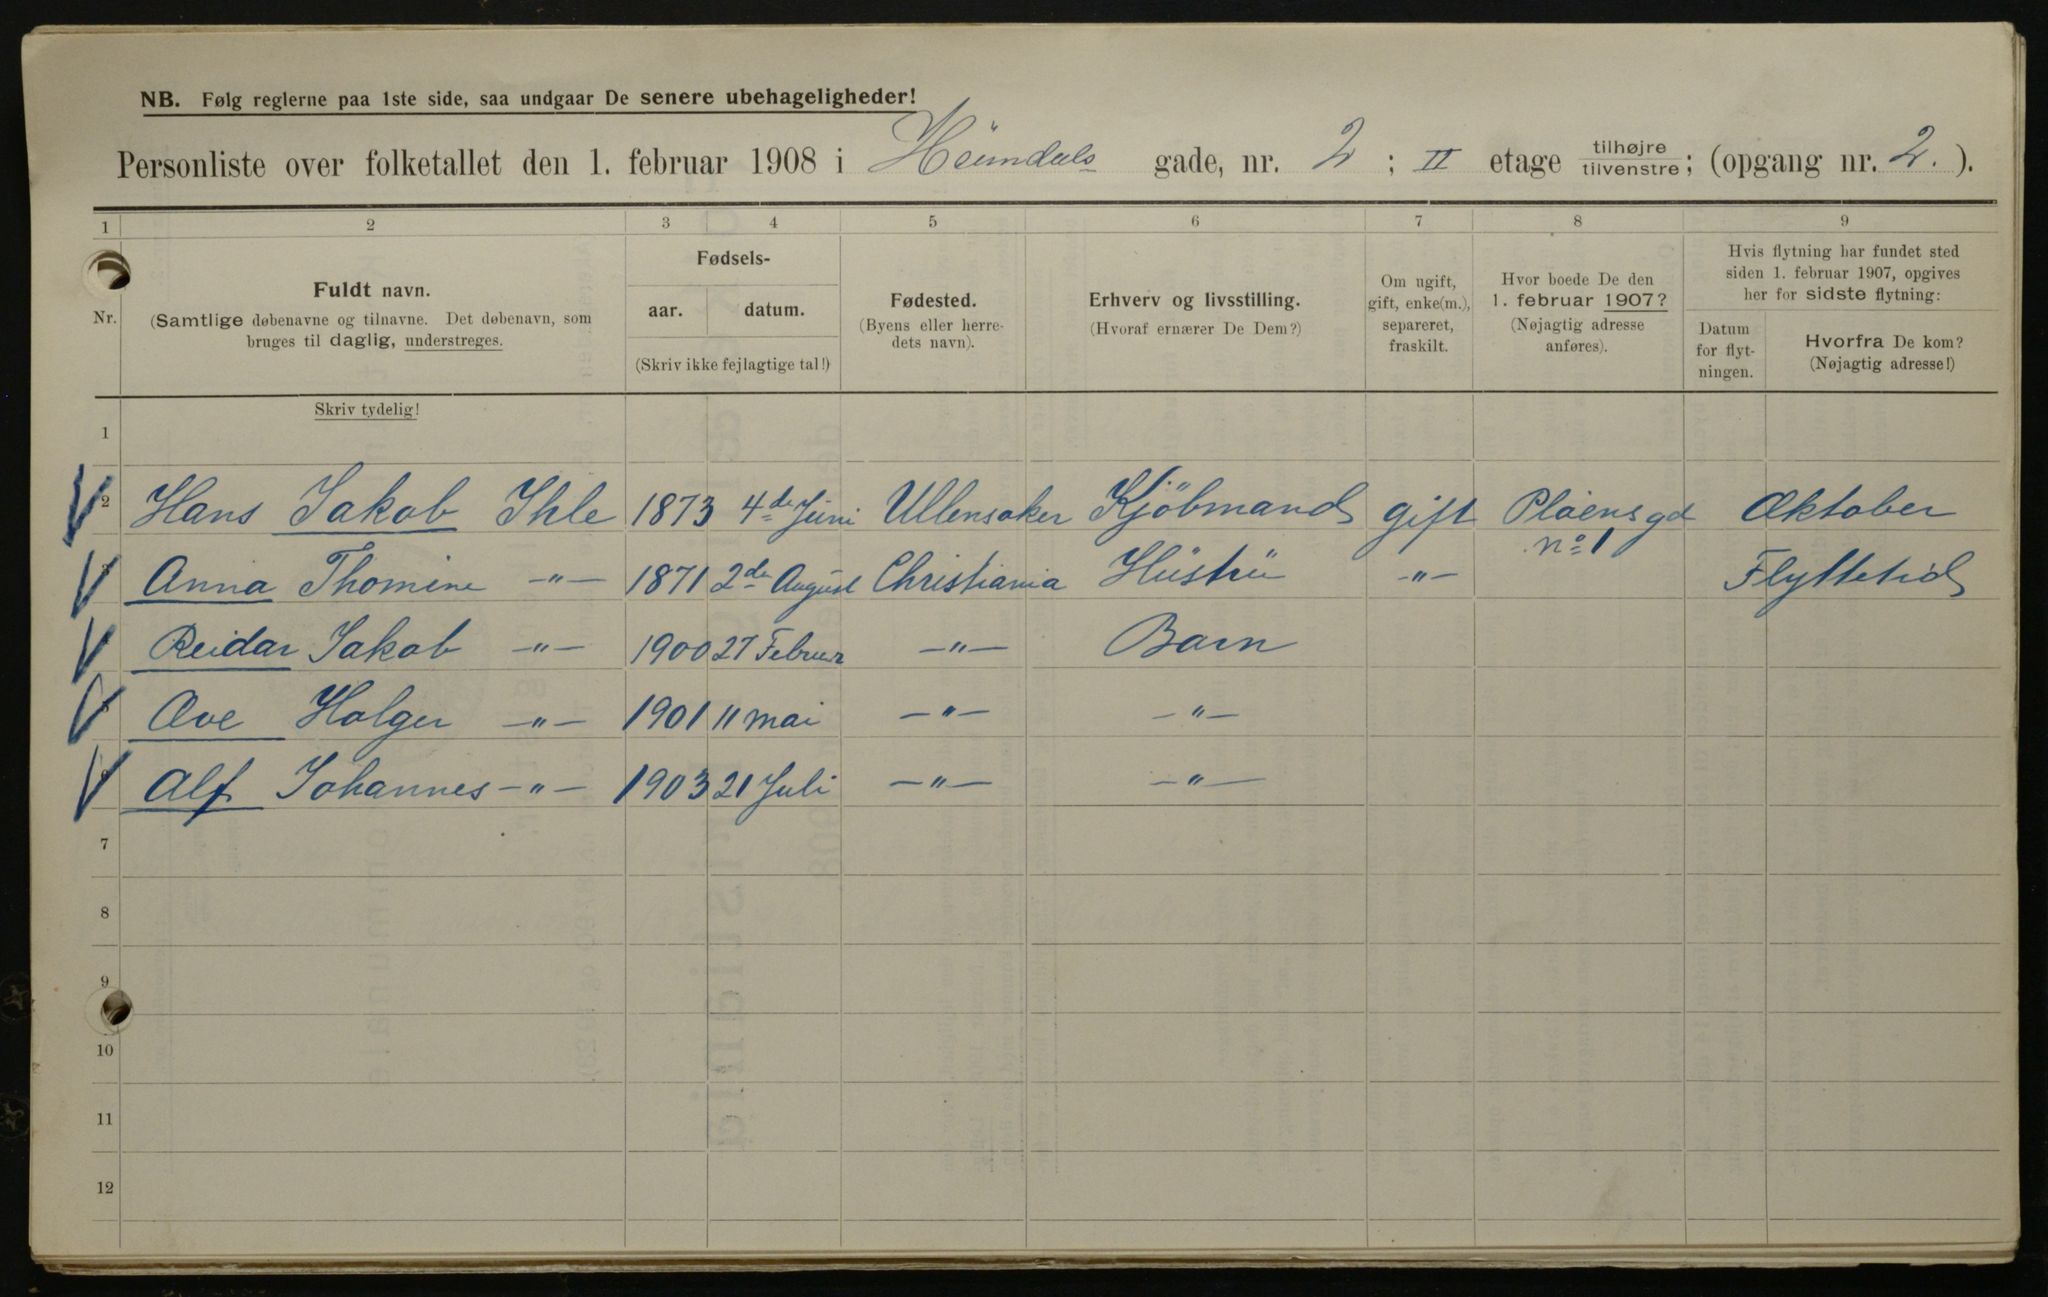 NB. Følg reglerne paa 1ste side, saa undgaar De senere ubehageligheder!
Personliste over folketallet den 1. februar 1908 i Heimdals gade, nr. 2 ; II etage tilhøjre tilvenstre; (opgang nr. 2. ).
1 2 3 4 5 6 7 8 9
Nr.
Fuldt navn.
(Samtlige døbenavne og tilnavne. Det døbenavn, som
bruges til daglig, understreges.
Skriv tydelig!
Fødsels-
aar. datum.
(Skriv ikke fejlagtige tal!)
Fødested.
(Byens eller herre-
dets navn).
Erhverv og livsstilling.
(Hvoraf ernærer De Dem?)
Om ugift,
gift, enke(m.),
separeret,
fraskilt.
Hvor boede De den
1. februar 1907?
(Nøjagtig adresse
anføres).
Hvis flytning har fundet sted
siden 1. februar 1907, opgives
her for sidste flytning:
Datum
for flyt-
ningen.
Hvorfra De kom?
(Nøjagtig adresse!)
1
2 Hans Jakob Ihle 1873 4de Juni Ullensaker Kjöbmand gift Pløensgd Oktober
no 1
3 Anna Thomine -"- 1871 2de August Christiania Hustru -"- Flyttetid
Reidar Jakob -"- 1900 27 Februar -"- Barn
Ove Holger -"- 1901 11 mai -"- -"-
Alf Johannes -"- 1903 21 Juli -"- -"-
7
8
9
10
11
12